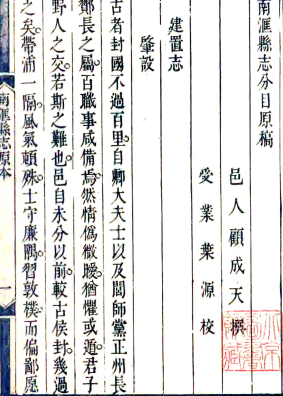 南滙縣志分目原稿
邑人顧成天撰
受業葉源校
建置志
肇設
古者封國不過百里自卿大夫士以及閭師黨正州長
酇長之屬百職事咸備焉然情僞微曖猶懼或遁君子
野人之交若斯之難也邑自未分以前較古侯封幾過
之矣帶浦一隔風氣頓殊士守廉隅習敦樸而偏鄙愿
南滙縣志原本
一